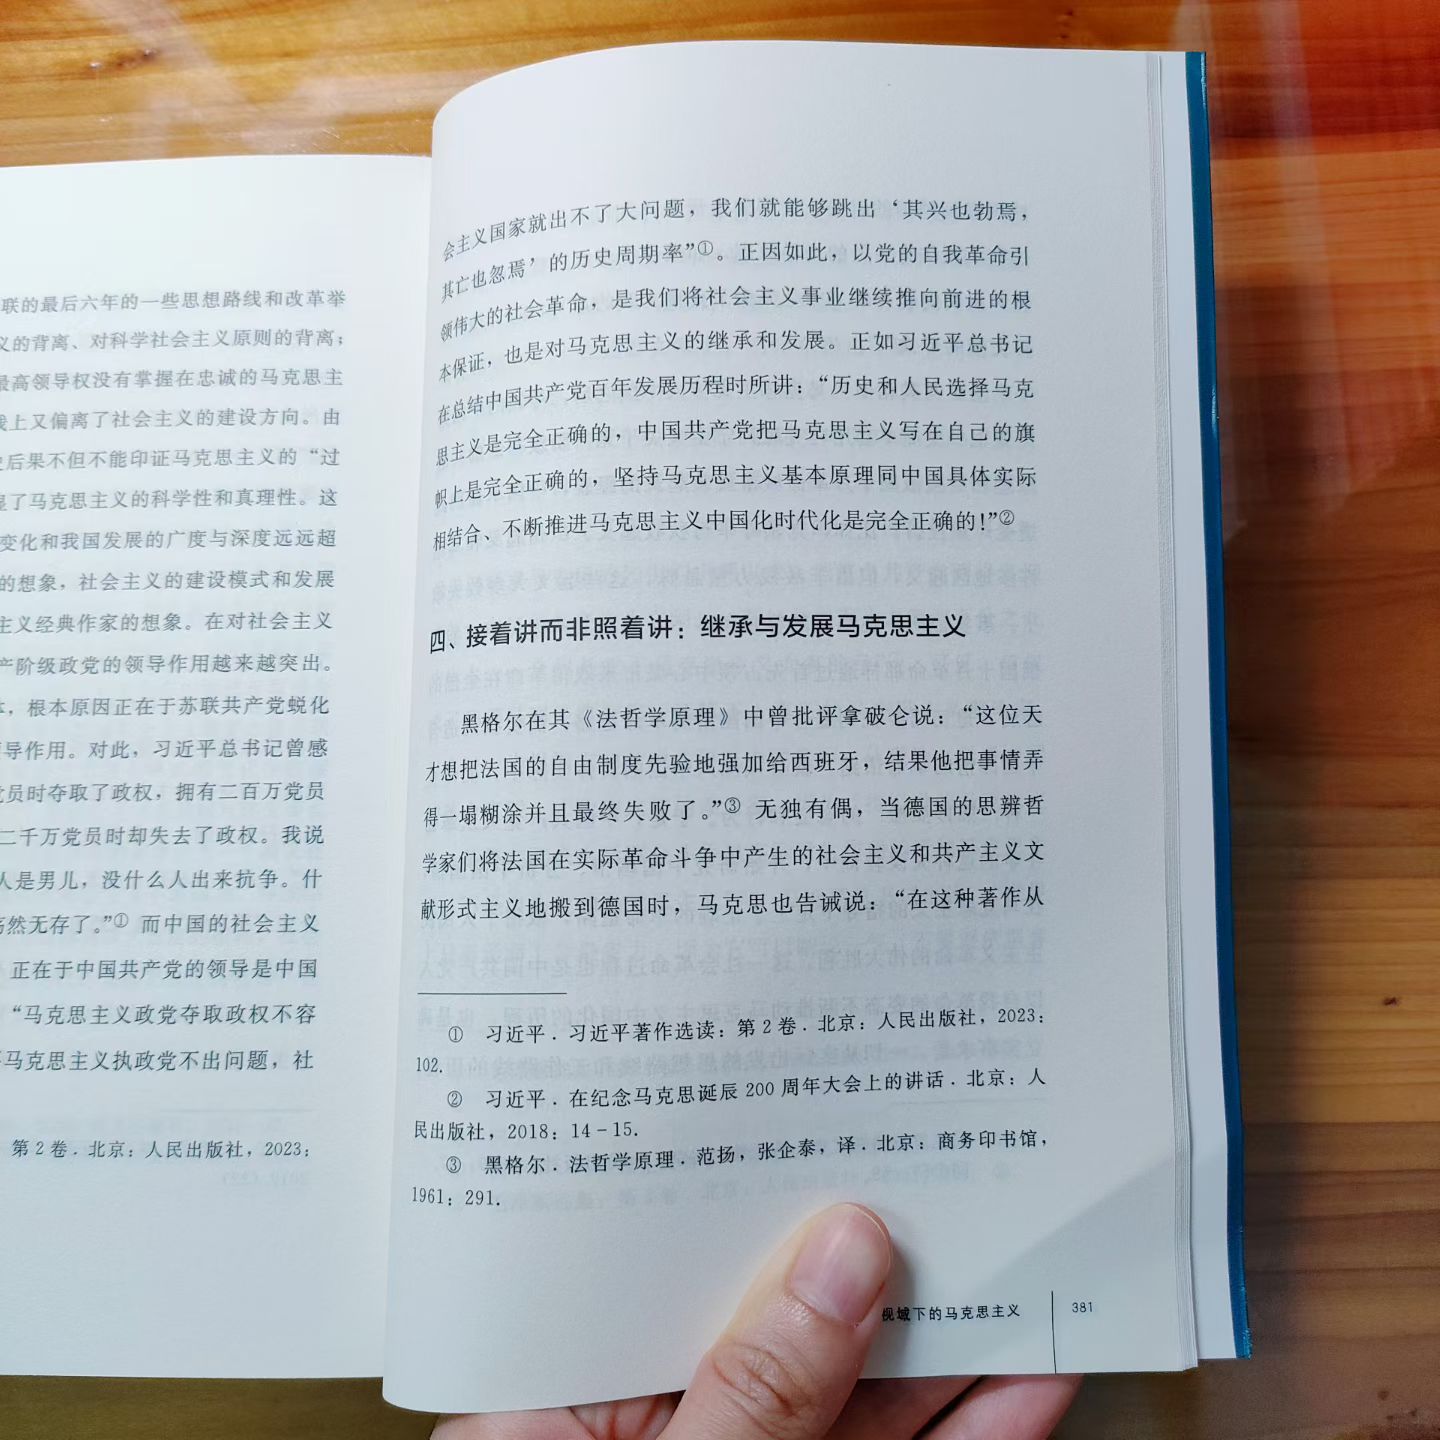 联的最后六年的一些思想路线和改革举
义的背离、对科学社会主义原则的背离；
最高领导权没有掌握在忠诚的马克思主
线上又偏离了社会主义的建设方向。由
后果不但不能印证马克思主义的“过
显了马克思主义的科学性和真理性。这
变化和我国发展的广度与深度远远超
的想象，社会主义的建设模式和发展
主义经典作家的想象。在对社会主义
产阶级政党的领导作用越来越突出。
，根本原因正在于苏联共产党蜕化
导作用。对此，习近平总书记曾感
党员时夺取了政权，拥有二百万党员
二千万党员时却失去了政权。我说
人是男儿，没什么人出来抗争。什
荡然无存了。”① 而中国的社会主义
正在于中国共产党的领导是中国
“马克思主义政党夺取政权不容
马克思主义执政党不出问题，社
第 2 卷. 北京：人民出版社，2023：
会主义国家就出不了大问题，我们就能够跳出‘其兴也勃焉，
其亡也忽焉’的历史周期率”①。正因如此，以党的自我革命引
领伟大的社会革命，是我们将社会主义事业继续推向前进的根
本保证，也是对马克思主义的继承和发展。正如习近平总书记
在总结中国共产党百年发展历程时所讲：“历史和人民选择马克
思主义是完全正确的，中国共产党把马克思主义写在自己的旗
帜上是完全正确的，坚持马克思主义基本原理同中国具体实际
相结合、不断推进马克思主义中国化时代化是完全正确的！”②
四、接着讲而非照着讲：继承与发展马克思主义
黑格尔在其《法哲学原理》中曾批评拿破仑说：“这位天
才想把法国的自由制度先验地强加给西班牙，结果他把事情弄
得一塌糊涂并且最终失败了。”③ 无独有偶，当德国的思辨哲
学家们将法国在实际革命斗争中产生的社会主义和共产主义文
献形式主义地搬到德国时，马克思也告诫说：“在这种著作从
① 习近平. 习近平著作选读：第 2 卷. 北京：人民出版社，2023：
102.
② 习近平. 在纪念马克思诞辰 200 周年大会上的讲话. 北京：人
民出版社，2018：14－15.
③ 黑格尔. 法哲学原理. 范扬，张企泰，译. 北京：商务印书馆，
1961：291.
视域下的马克思主义 381